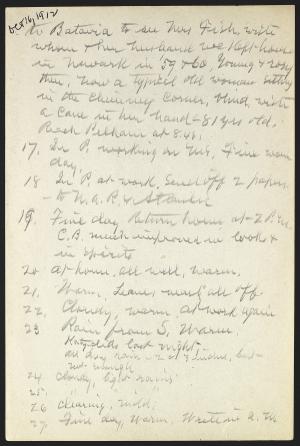 Oct 16, 1912
to Batavia to see Mrs Fish, with
whom & her husband we kept house
in Newark in 59 & 60. Young & rosy
then, now a typical old woman sitting
in the chimney corner, blind, with
a cane in her hand - 81 yrs old.
Reach Pelham at 8.45.
17. In P. working on MS, Fine warm
day,
18 In P. at work. Send off 2 papers
- to N.A.R. &
19. Fine day, Return home at 2 P.M.
C.B. much improved in looks &
in spirits
20 At home, all well, warm.
21. Warm, Leaves nearly all off
22. Cloudy, warm, at work again
23 Rain from S. Warm.
Katydids last night
all day rain - 2 or 3 inches, but
not enough
24 Cloudy, light rains
25. " " "
26 clearing, mild.
27. Fine day, warm. Write in a.m.